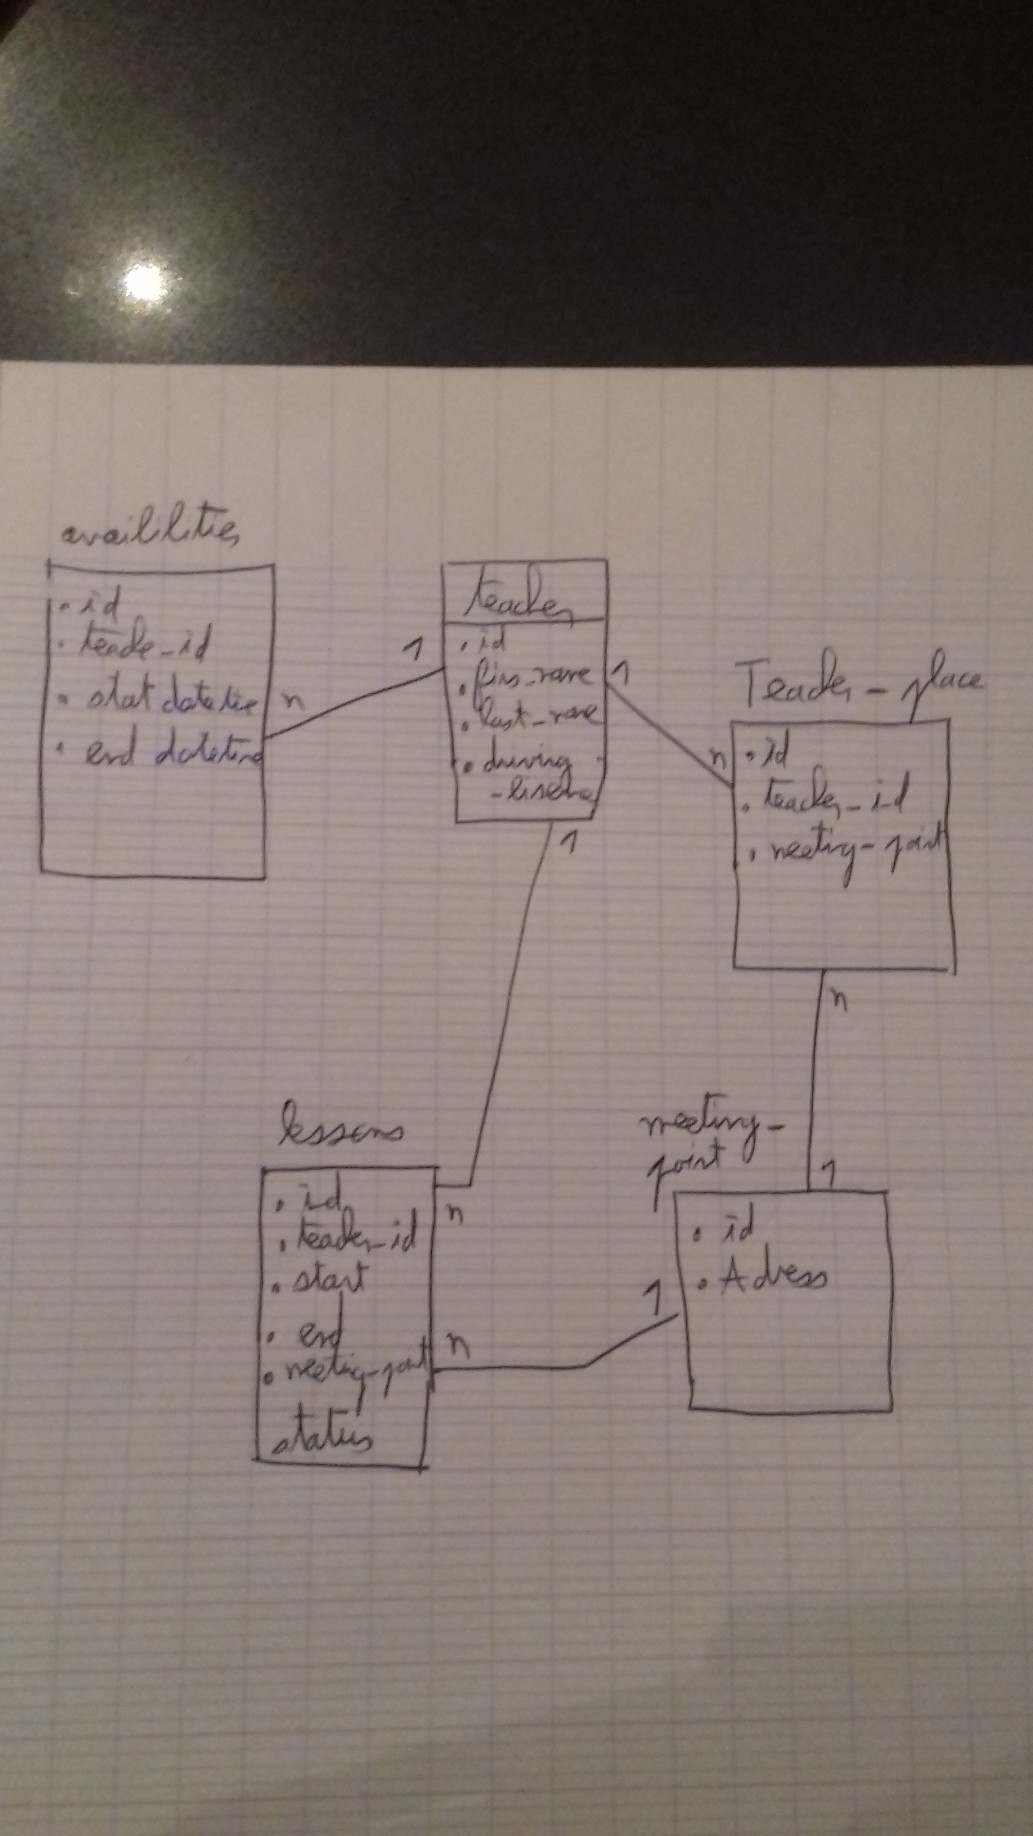 availlities
. id
. teache_id
. stat datetie
. end datetime
n
1
teacher
. id
. firs_name
. last_name
. driving
-lisence
1
n
1
Teacher - place
. id
. teacher_id
. meeting-point
n
1
lessens
. id
. teacher_id
. start
. end
. meeting-point
status
n
n
1
meeting-
point
. id
. Adress